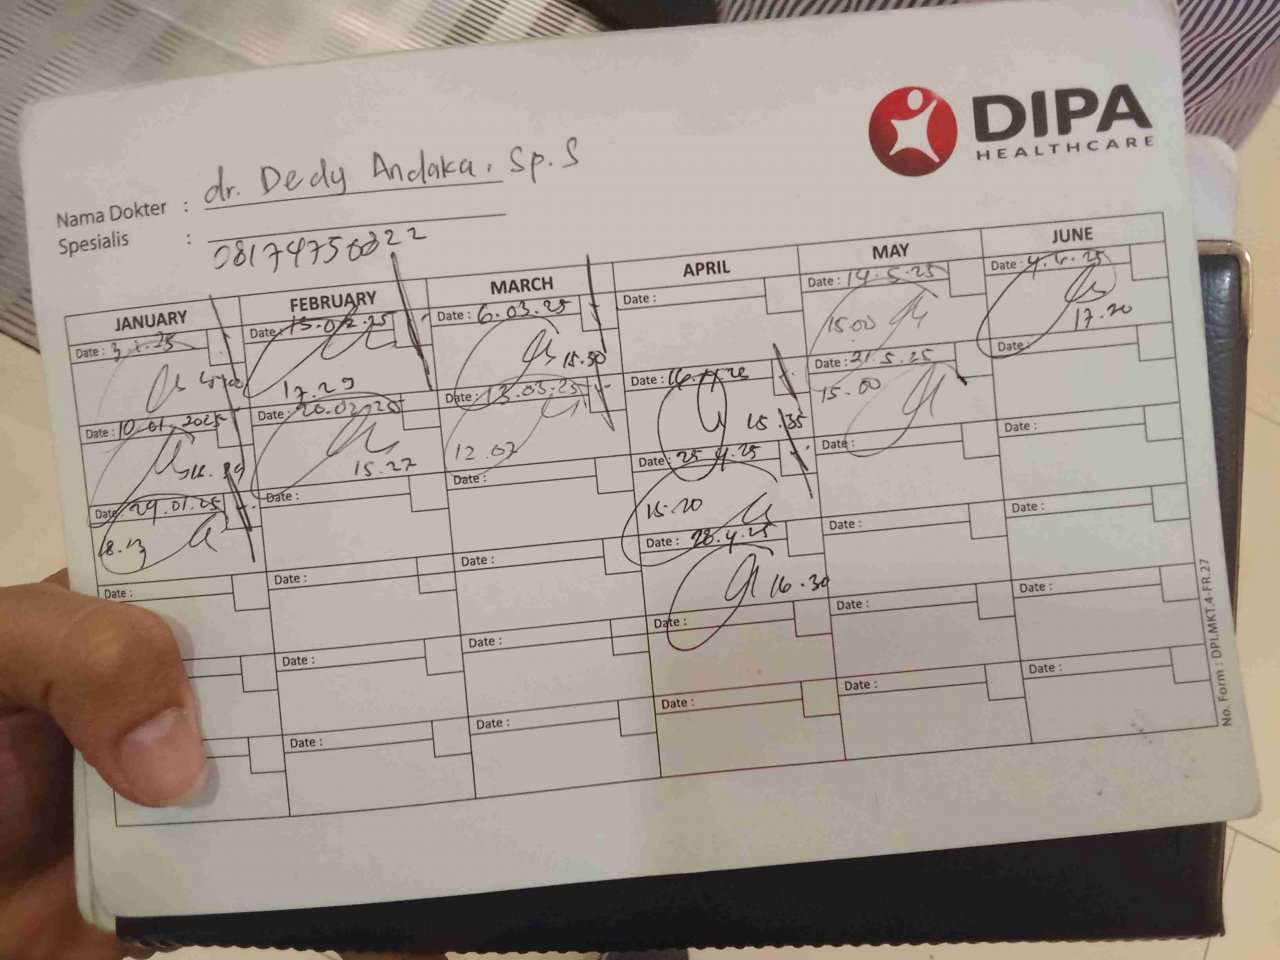 DIPA
HEALTHCARE
Nama Dokter : dr. Dedy Andaka. Sp.S
Spesialis :
JANUARY FEBRUARY MARCH APRIL MAY JUNE
Date : 3.1.25
Date : 15.02.25
17.29
Date : 6.03.25
15.50
Date :
Date : 14.5.25
15.00
Date : 4.6.25
17.20
Date : 10.01.2025
Date : 20.02.25
15.27
Date : 13.03.25
12.07
Date : 16.4.25
15.35
Date : 21.5.25
15.00
Date :
Date : 29.01.25
18.13
Date :
Date :
Date : 25.4.25
15.20
Date :
Date :
Date :
Date :
Date :
Date : 28.4.25
16.30
Date :
Date :
Date :
Date :
Date :
Date :
Date :
Date :
Date :
Date :
Date :
Date :
No. Form : DPI.MKT.4-FR.27